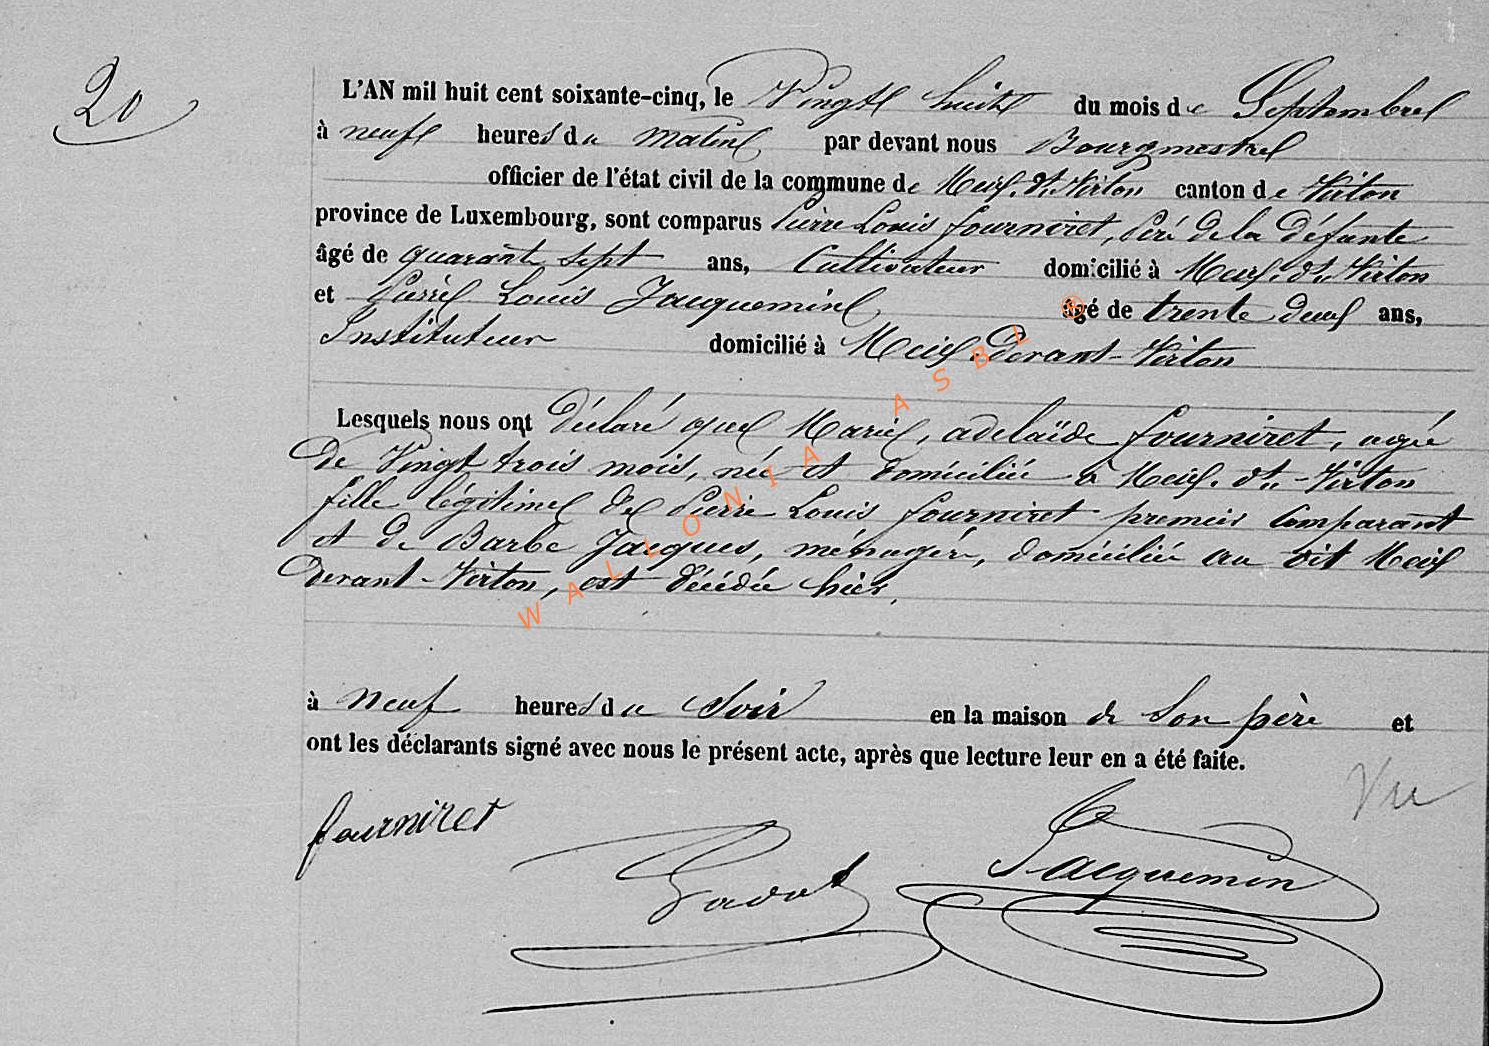 20
L'AN mil huit cent soixante-cinq, le Vingt huit du mois de Septembre
à neuf heures du matin par devant nous Bourgmestre
officier de l'état civil de la commune de Meix. dt. Virton canton de Virton
province de Luxembourg, sont comparus Pierre Louis fourniret, Père de la défunte
âgé de quarant sept ans, Cultivateur domicilié à Meix. dt. Virton
et Pierre Louis Jacquemin âgé de trente deux ans,
Instituteur domicilié à Meix devant-Virton
Lesquels nous ont déclaré que Marie, adelaïde fourniret, agée
de Vingt trois mois, née et domiciliée à Meix. dt.-Virton
fille légitime de Pierre Louis fourniret premier Comparant
et de Barbe Jacques, ménagère, domiciliée au dit Meix
devant-Virton, est décédée hier,
à neuf heures du Soir en la maison de Son père et
ont les déclarants signé avec nous le présent acte, après que lecture leur en a été faite.
Vu
fourniret
Jacquemin
WALLONIA ASBL